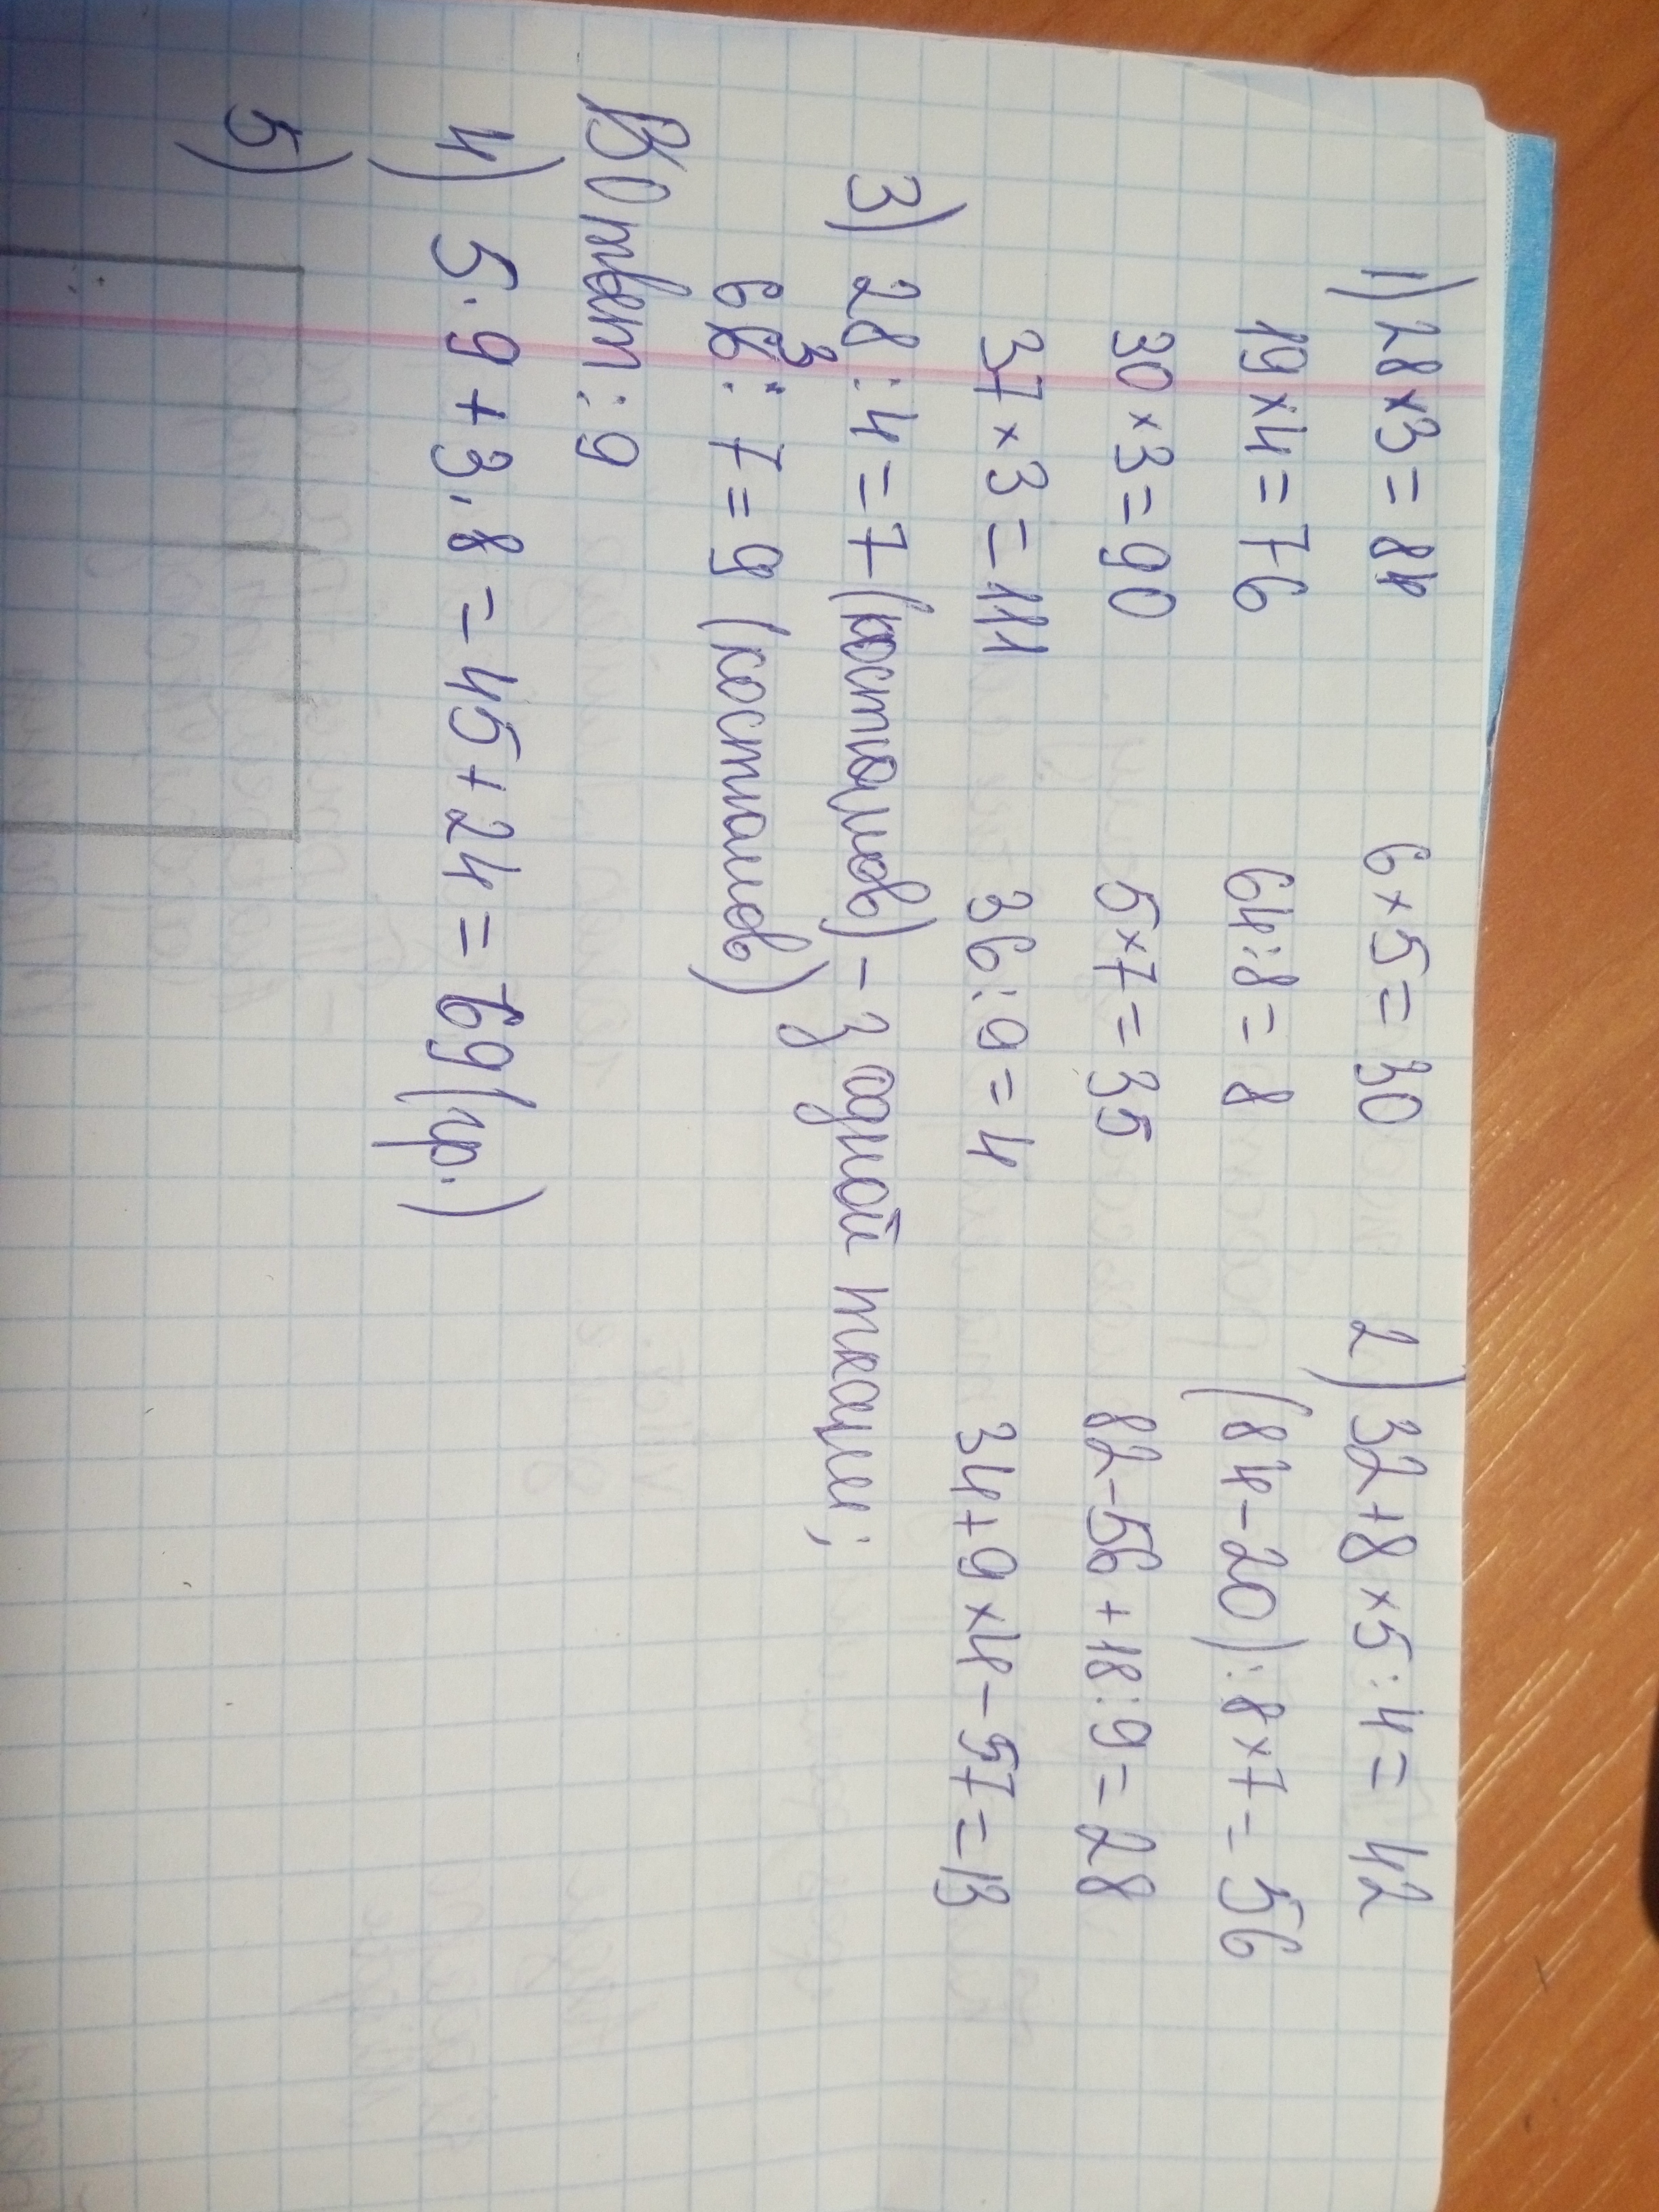 1) 28 × 3 = 84 6 × 5 = 30 2) 32 + 8 × 5 : 4 = 42
19 × 4 = 76 64 : 8 = 8 (84 - 20) : 8 × 7 = 56
30 × 3 = 90 5 × 7 = 35 82 - 56 + 18 : 9 = 28
37 × 3 = 111 36 : 9 = 4 34 + 9 × 4 - 57 = 13
3) 28 : 4 = 7 (костюмов) - з одной ткани;
63 : 7 = 9 (костюмов)
Ответ : 9
4) 5 · 9 + 3 · 8 = 45 + 24 = 69 (гр.)
5)